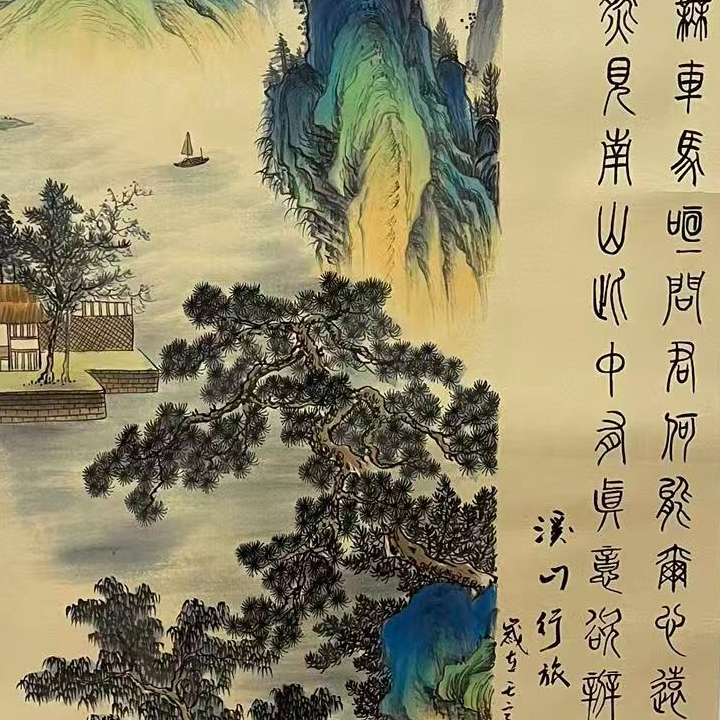 無車馬喧問君何能爾心遠
然見南山此中有眞意欲辨
溪山行旅
歲在